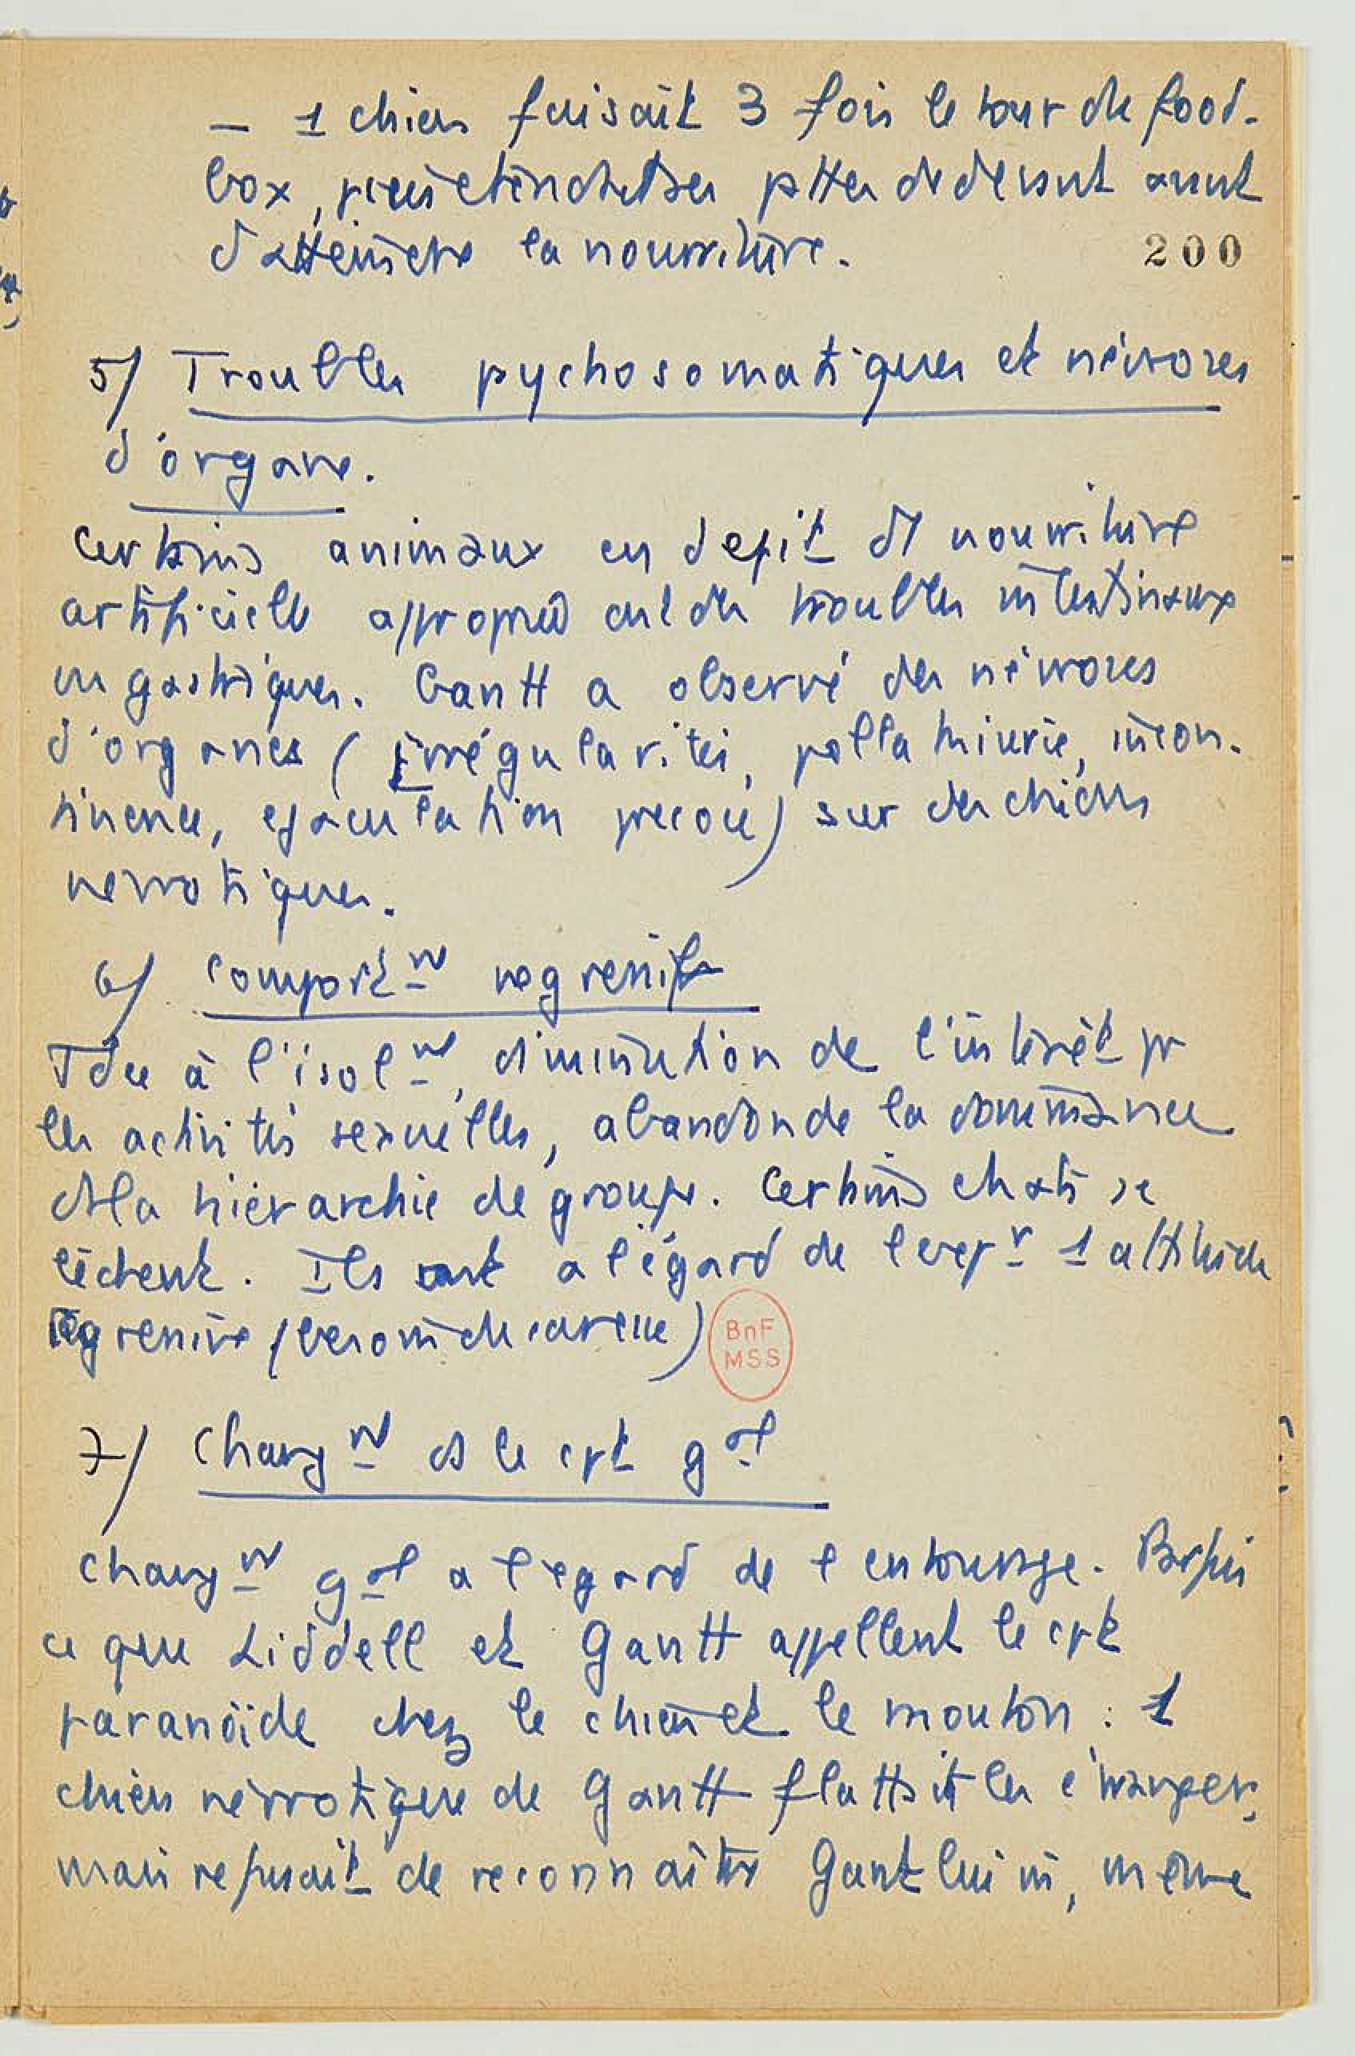 — 1 chien faisait 3 fois le tour du food-
box, puis étendait ses pttes de devant avant
d'atteindre la nourriture.
200
5/ Troubles pychosomatiques et névroses
d'organe.
Certains animaux en depit d' nourriture
artificielle approprié ont des troubles intestinaux
ou gastriques. Gantt a observé des névroses
d'organes (Irrégularités, pollakiurie, incon-
tinence, ejaculation precoce) sur des chiens
nevrotiques.
6/ Comportnt regressifs
Idu à l'isolnt, diminution de l'intérêt pr
les activités sexuelles, abandon de la dominance
ds la hiérarchie de groupe. Certains chats se
lèchent. Ils ont a l'égard de l'expr 1 attitude
régressive (besoin de caresse)
BnF
MSS
7/ Changnt ds le cpt gal
Changnt gal a l'egard de l entourage. Parfois
ce que Liddell et Gantt appellent le cpt
paranoïde chez le chien et le mouton : 1
chien névrotique de Gantt flattait les étrangers,
mais refusait de reconnaître Gant lui m, même